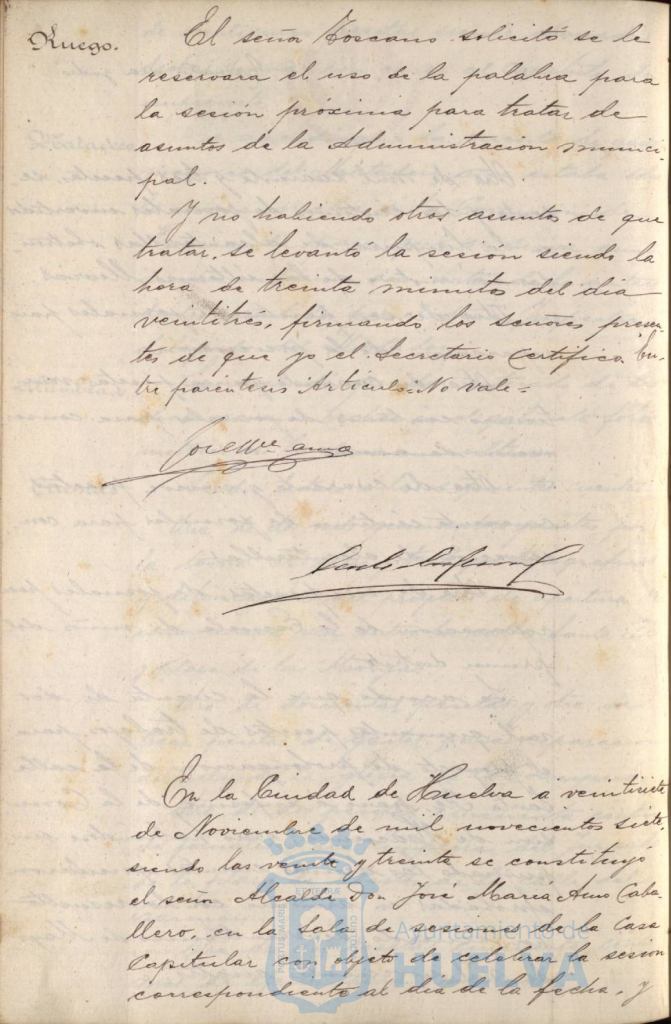 Ruego.
El señor Toscano solicitó se le
reservara el uso de la palabra para
la sesión próxima para tratar de
asuntos de la Administracion munici-
pal.
Y no habiendo otros asuntos de que
tratar, se levantó la sesión siendo la
hora de treinta minutos del dia
veintitrés, firmando los señores presen-
tes de que yo el Secretario Certifico. En-
tre parentesis Articulo = No vale =
En la Ciudad de Huelva a veintisiete
de Noviembre de mil novecientos siete
siendo las veinte y treinta se constituyó
el señor Alcalde Don José María Amo Caba-
llero, en la Sala de sesiones de la Casa
Capitular con objeto de celebrar la sesion
correspondiente al dia de la fecha, y
Ayuntamiento de
HUELVA